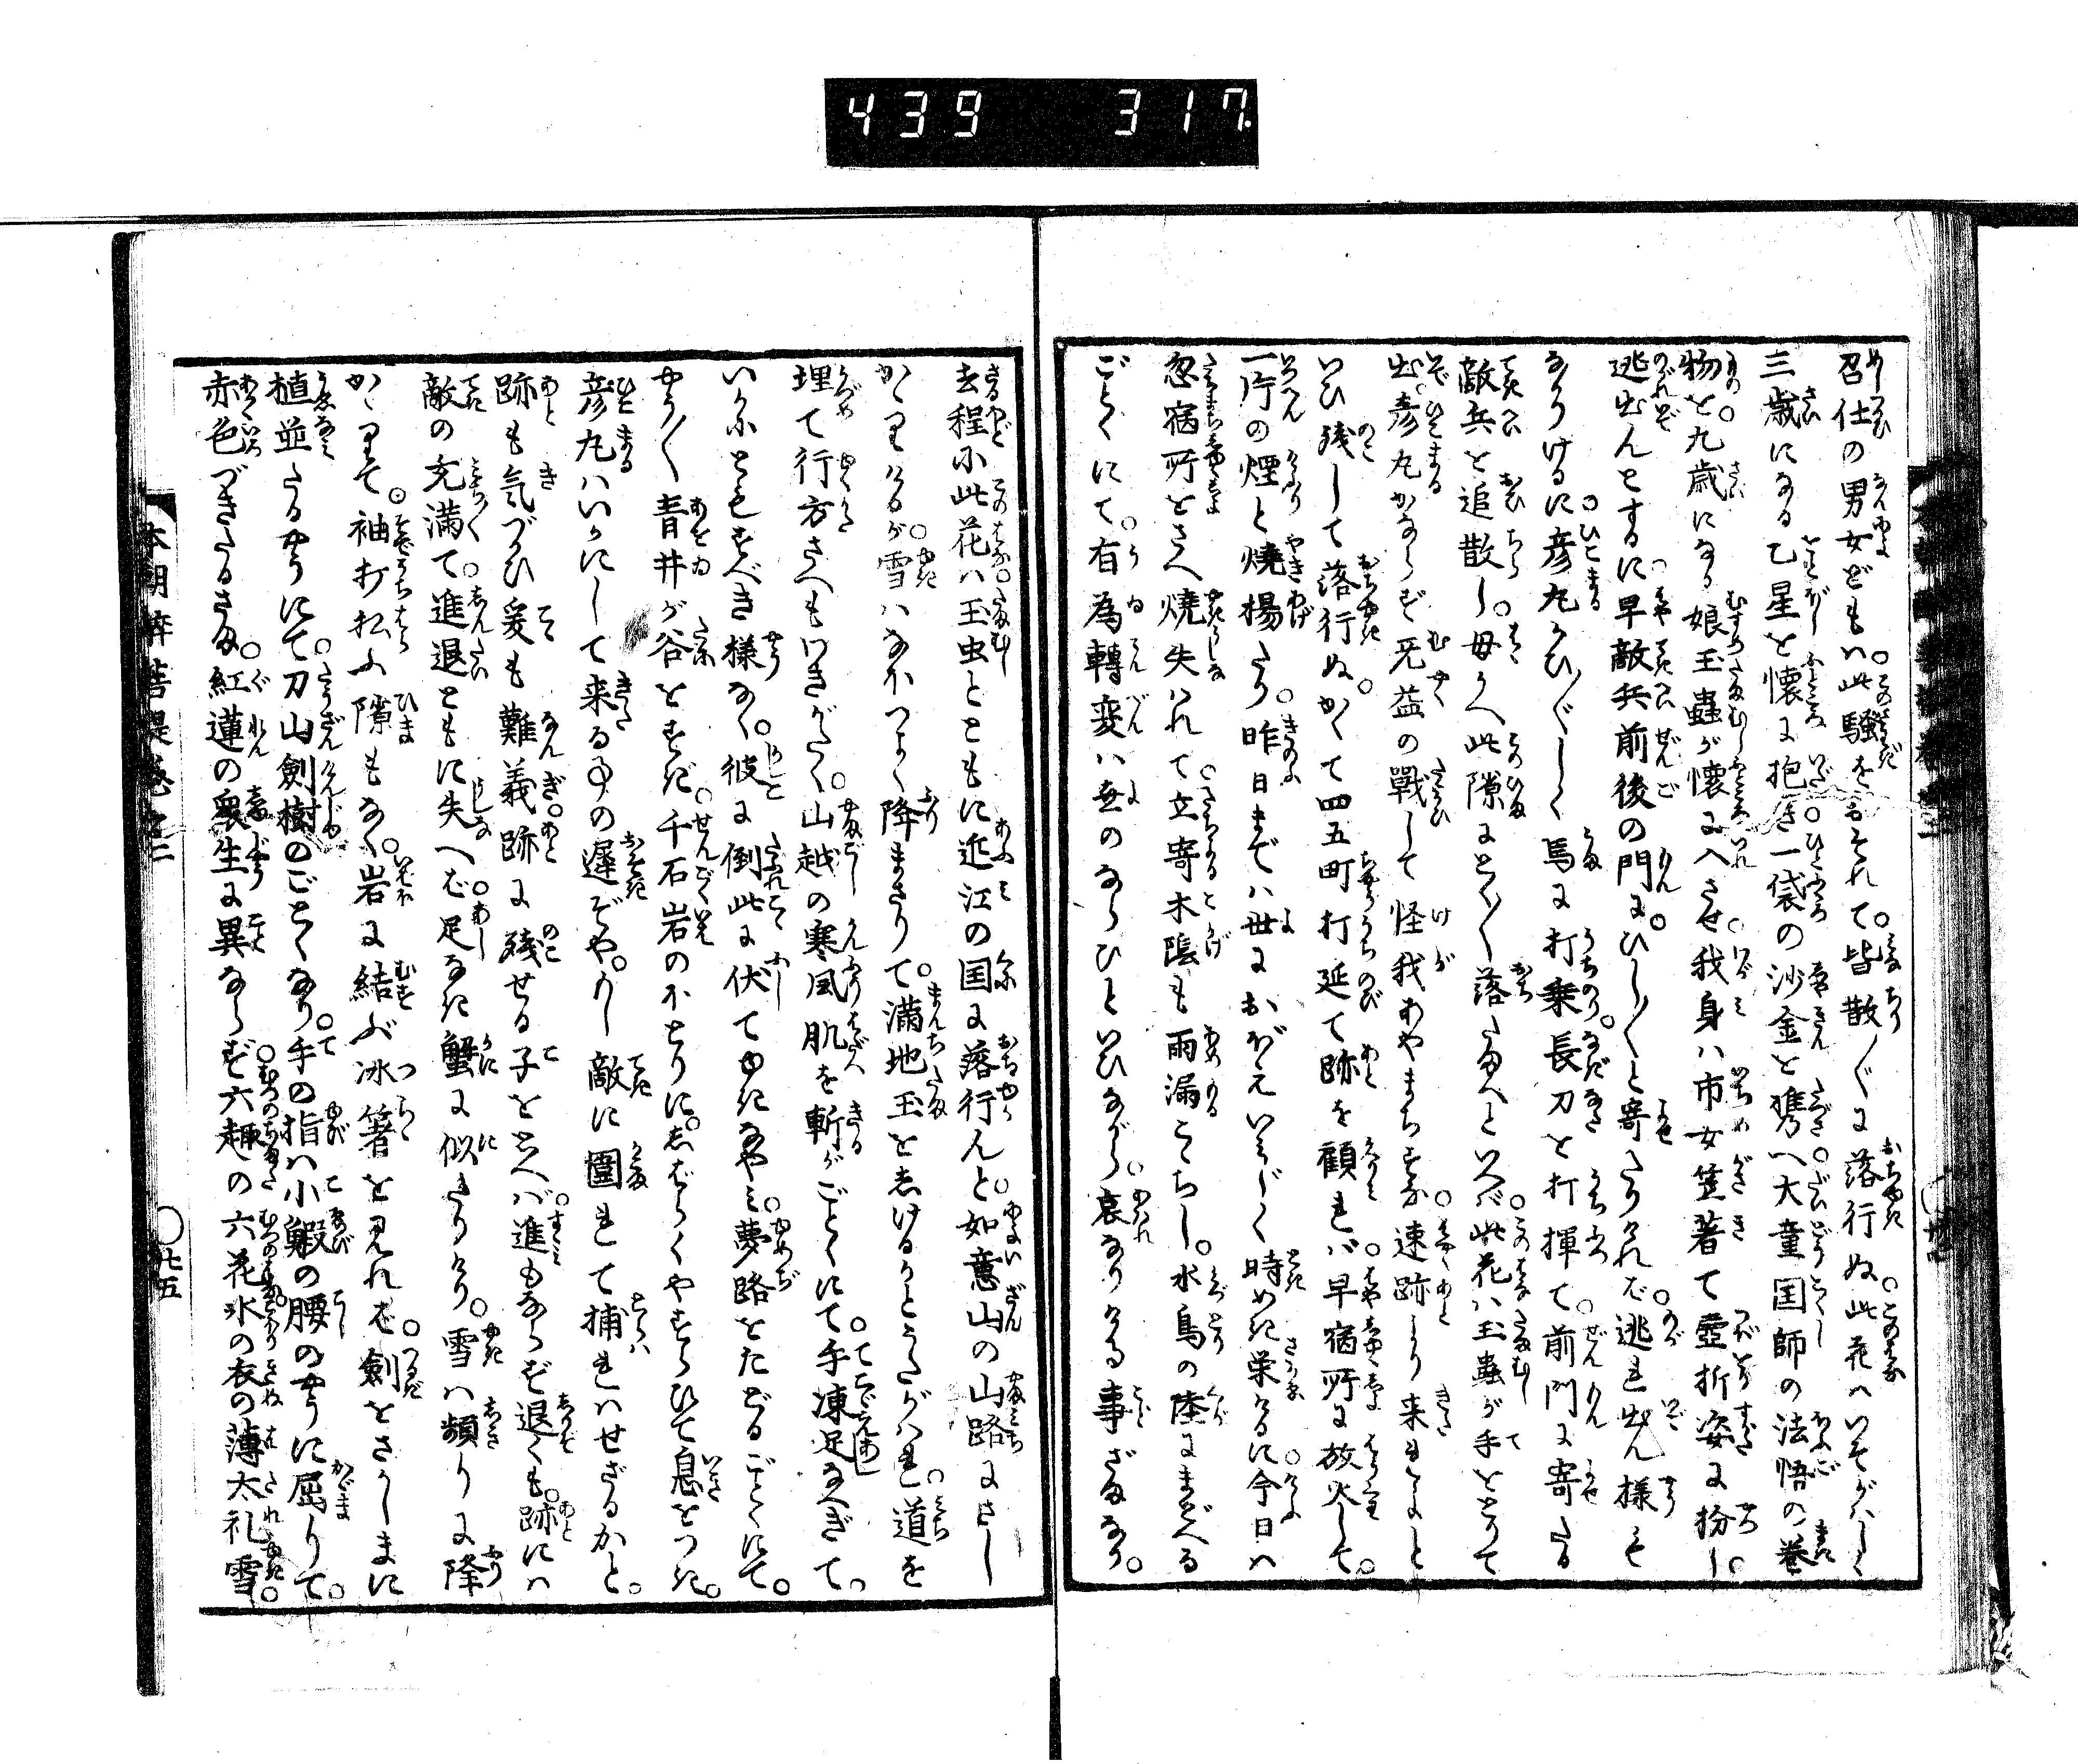 439 317
召仕の男女どもハ此騒をおそれて。皆散〴〵に落行ぬ。此花ハいそがハしく
三歳になる乙星を懐に抱き一袋の沙金を携へ大童国師の法悟の巻
物を。九歳になる娘玉蟲が懐に入させ我身ハ市女笠著て壺折姿に扮し。
逃出んとするに早敵兵前後の門に。ひし〳〵と寄たりけれバ逃れ出ん様も
なかりけるに彦丸かひ〴〵しく馬に打乗長刀を打揮て前門に寄たる
敵兵を追散し。母うへ此隙にとく〳〵落たまへといへバ此花ハ玉蟲が手をとりて
出。彦丸かならず无益の戦して怪我あやまちすな速跡より来れよと
いひ残して落行ぬ。かくて四五町打延て跡を顧れバ早宿所に放火して。
一片の煙と焼揚たり昨日までハ世におぼえいミじく時めき栄けるに今日ハ
忽宿所さへ焼失はれて立寄木蔭も雨漏こゝちし。水鳥の陸にまどへる
ごとくにて。有為轉変ハ世のならひといひながら。哀なりける事どもなり。
去程に此花ハ玉虫とともに近江の国に落行んと。如意山の山路にさし
かゝりけるが雪ハなほつよく降まさりて。満地玉をしけるかとうたがハれ道を
埋て行方さへもいきがたく。山越の寒風肌を斬がごとくにて手凍足なへぎて。
いかにともすべき様なく。彼に倒此に伏てゆきなやミ。夢路をたどるごとくにて。
やう〳〵青井が谷をすぎ。千石岩のほとりに。しばらくやすらひて息をつき。
彦丸ハいかにして来る事の遅ぞや。もし敵に囲れて捕れハせざるかと。
跡も気づかひ爰も難義跡に残せる子をおもへバ。進もならず退くも。跡にハ
敵の充満て。進退ともに失へバ足なき蟹に似たりけり。雪ハ頻りに降
かゝりて。袖打払ふ隙もなく。岩に結ぶ氷箸を見れバ。剣をさかしまに
植並たるやうにて。刀山剣樹のごとくなり。手の指ハ小鰕の腰のやうに屈りて。
赤色づきたるさま。紅蓮の衆生に異ならず六趣の六花氷の衣の薄太礼雪。
本朝酔菩提巻之二
○七五